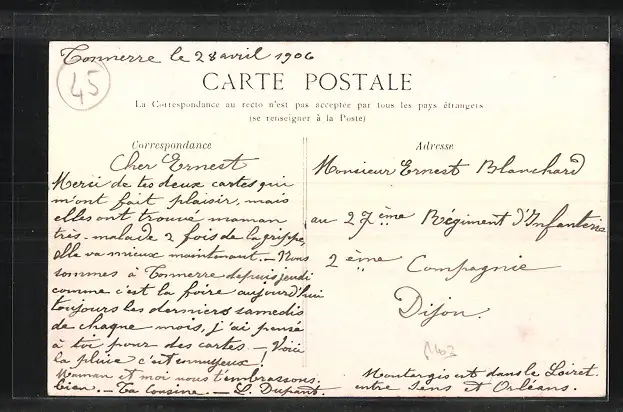 Tonnerre le 28 avril 1906
45
CARTE POSTALE
La Correspondance au recto n'est pas acceptée par tous les pays étrangers
(se renseigner à la Poste)
Correspondance
Cher Ernest
Merci de tes deux cartes qui
m'ont fait plaisir, mais
elles ont trouvé maman
très malade 2 fois de la grippe,
elle va mieux maintenant. - Nous
sommes à Tonnerre depuis jeudi
comme c'est la foire aujourd'hui
toujours les derniers samedis
de chaque mois, j'ai pensé
à toi pour des cartes - Voici
la pluie c'est ennuyeux!
Maman et moi nous t'embrassons
bien. - Ta cousine. - L. Dupont.
Adresse
Monsieur Ernest Blanchard
au 27ème Régiment d'Infanterie
2ème Compagnie
Dijon.
Montargis est dans le Loiret.
entre Sens et Orléans.